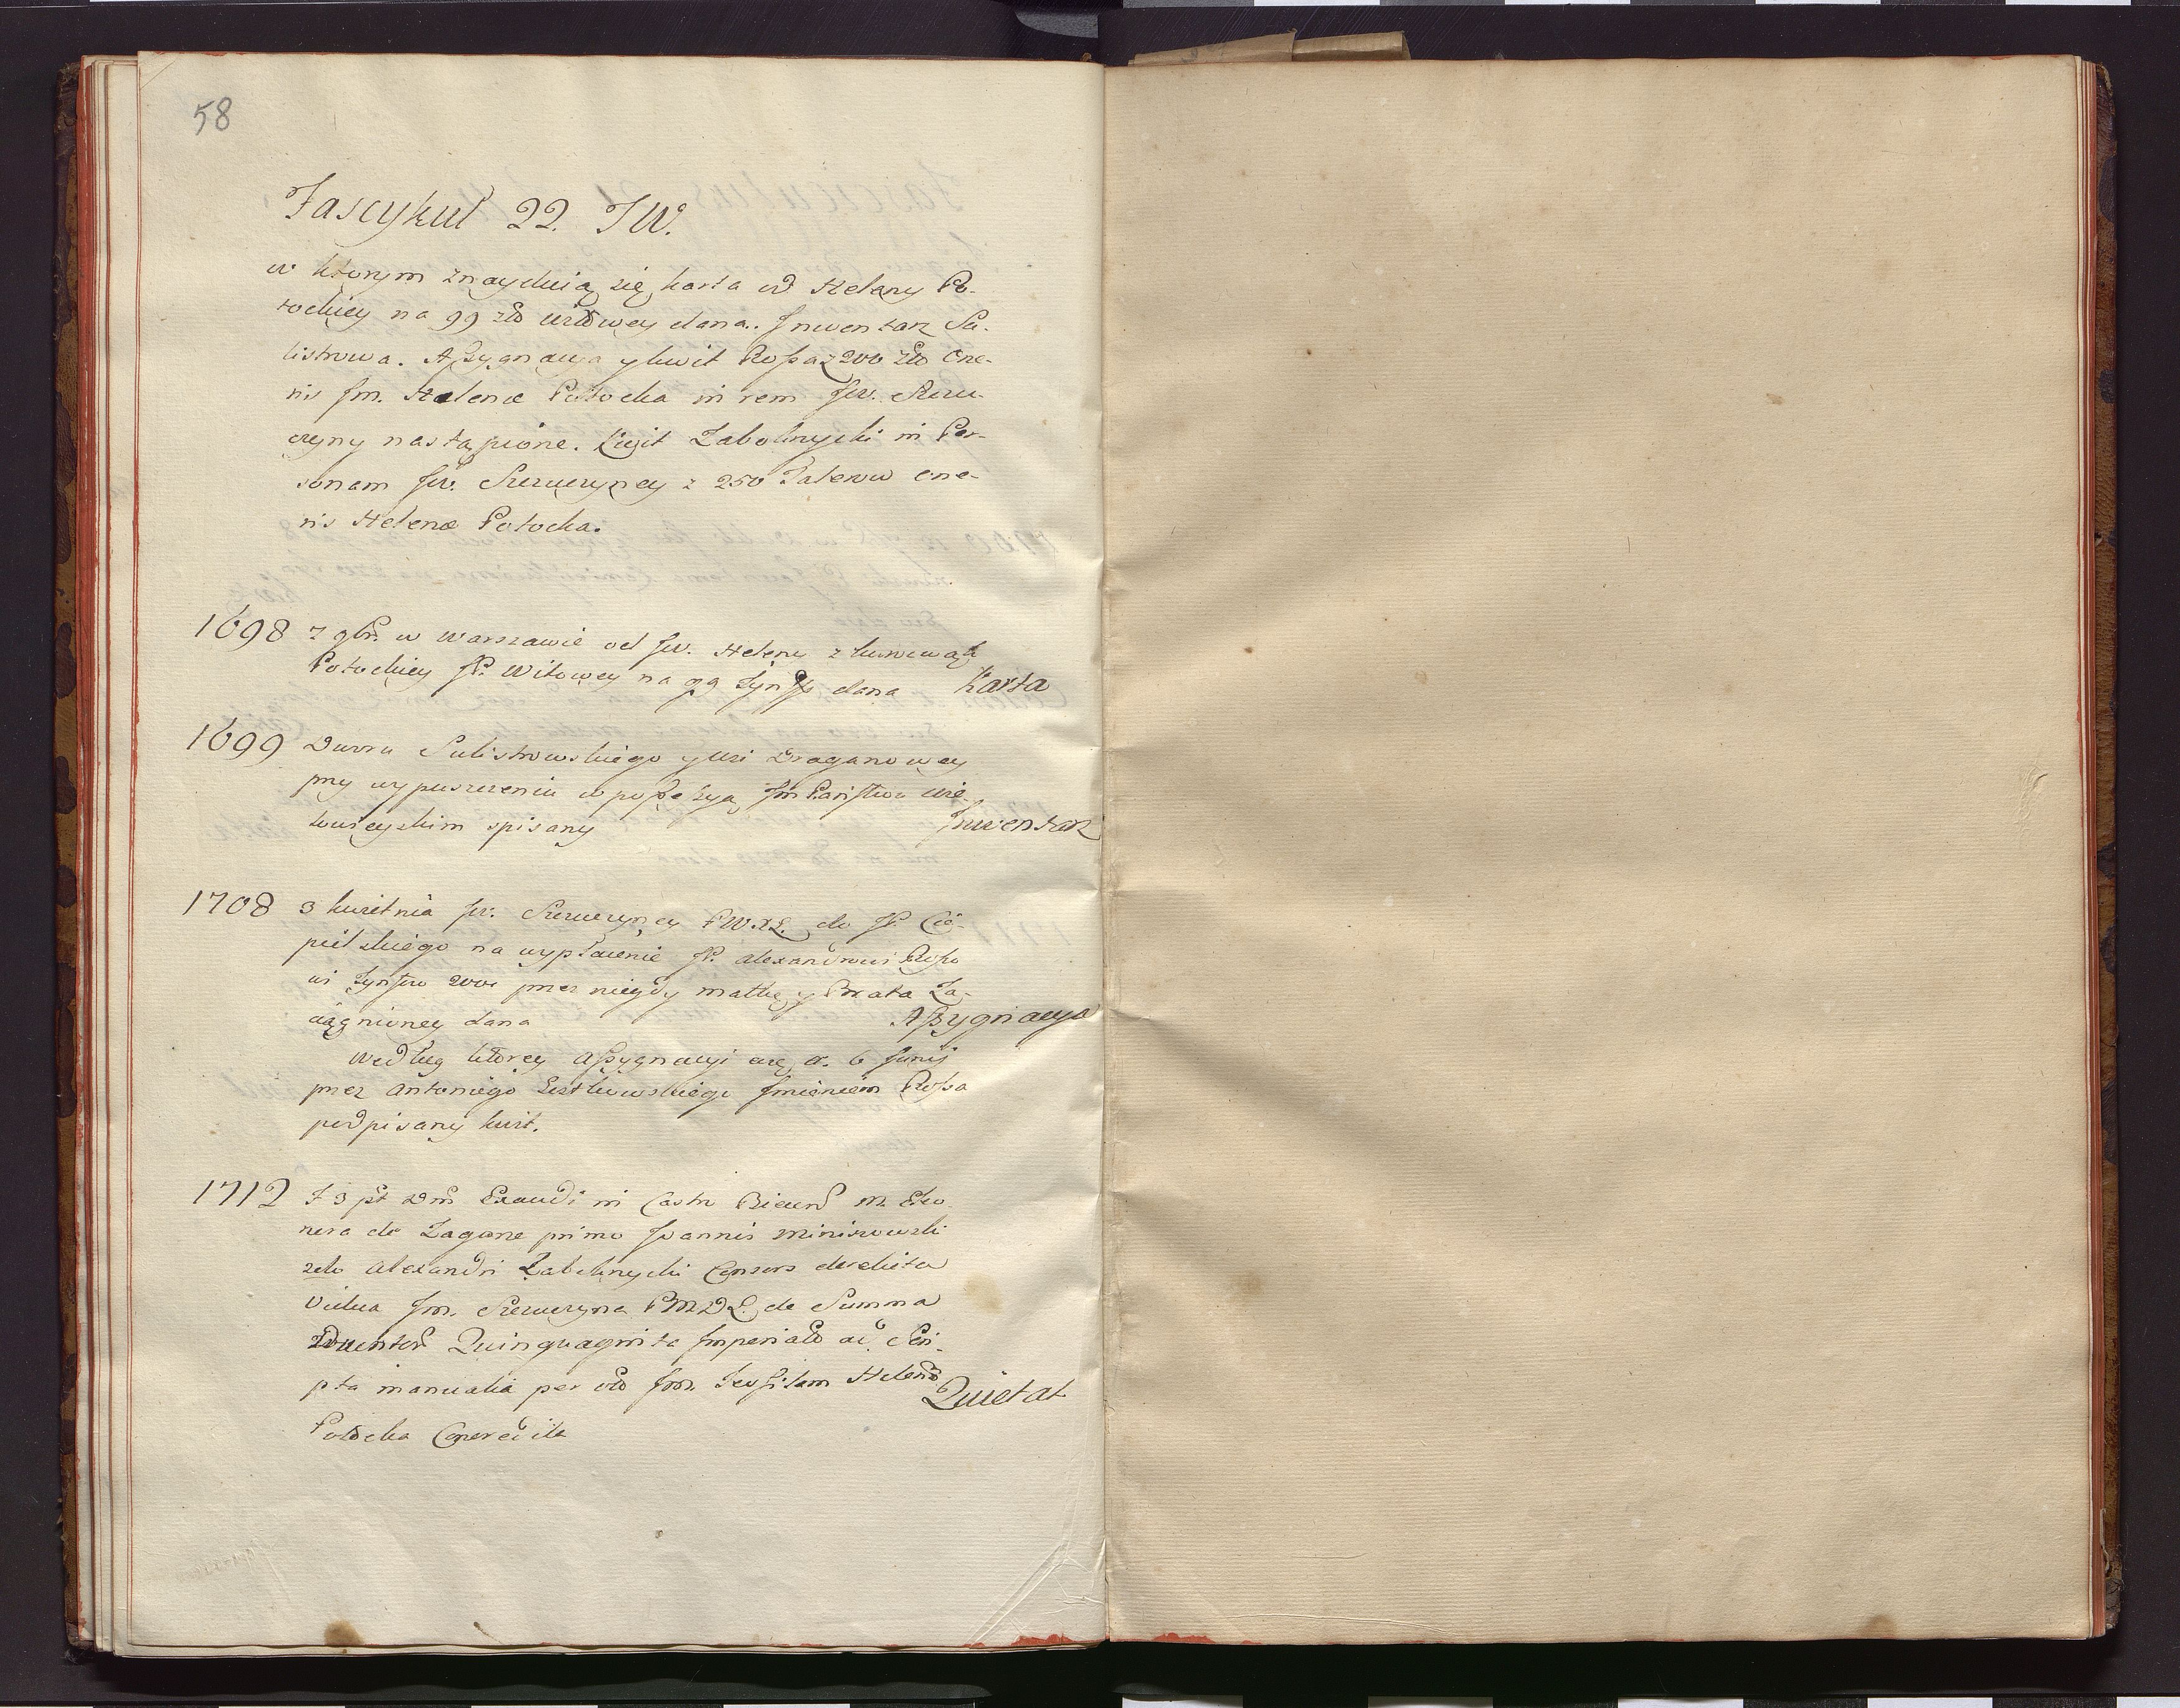 58
Fascykuł 22. JW.
w ktorym znayduią się karta od Heleny Po-
tockiey na 99 dana. Inwentarz Su-
listrowa. Assygnacya y kwit Rossa z 200 One-
ris Jm. Helenæ Potocka in rem Jw. Szczu-
czyny nastąpione. Kwit Zabolnycki in Per-
sonam Jw. Szczuczyney z 250 Talerow one-
ris Helenæ Potocka.
1698 7 9br. w Warszawie od Jw. Heleny
Potockiey na 99 Tyn. dana Karta
1699 Dworu Sulistrowskiego y wsi Draganowey
przy wypuszczeniu w possesyą Jm Państwu Wie
lowieyskim spisany Inwentarz
1708 3 kwietnia Jw. Szczuczyney do JP. Cie-
pielskiego na wypłacenie JP. Alexandrowi Rosso
wi Tynfow przez niegdy matkę y Brata Za-
ciągnioney dana Assygnacya
Według ktorey Assygnacyi 6 Junij
przez Antoniego Imieniem Rossa
podpisany kwit.
1712 F 3 pt Dnī Exaudi in Castro Biecen M. Eleo
nora de Zagane primo Joannis Miniszowski
2do Alexandri Zabolnycki Consors derelicta
Vidua Jm. Szczuczyna de Summa
Ducentor Quinquaginta Imperialo ad Scri-
pta manualia per Jm. Helenā
Potocka Quietat